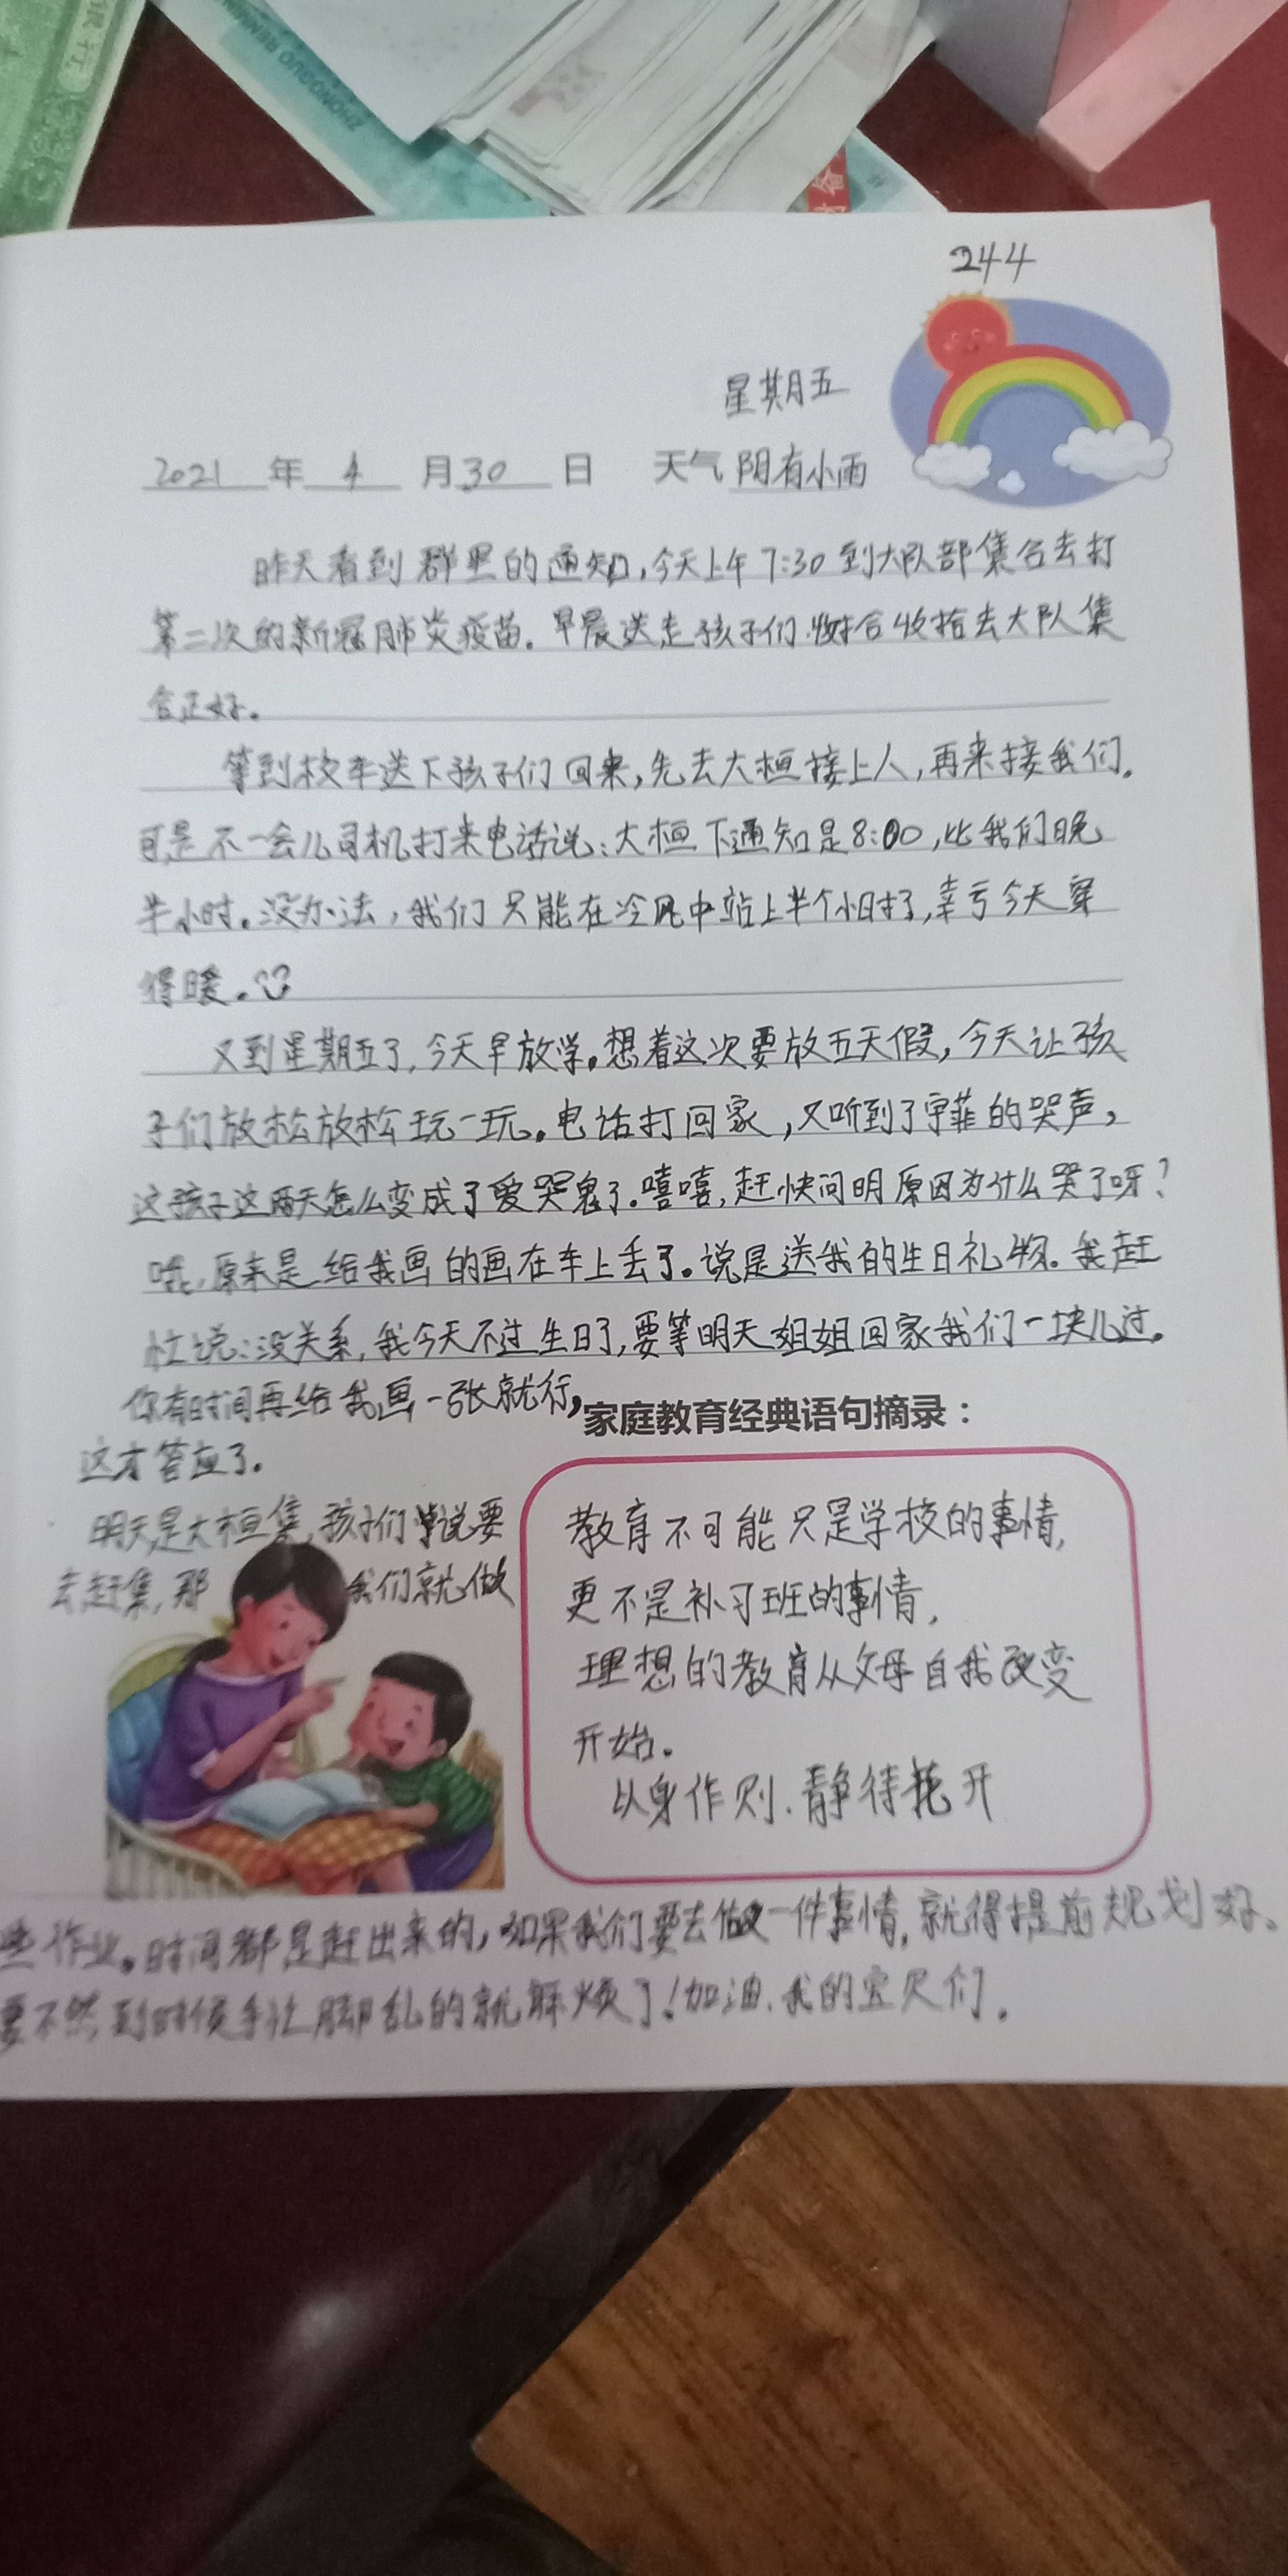 ZHONGGUO RENMIN
244
星期五
2021年4月30日 天气阴有小雨
昨天看到群里的通知,今天上午7:30到大队部集合去打
第二次的新冠肺炎疫苗。早晨送走孩子们.收拾收拾去大队集
合正好。
等到校车送下孩子们回来,先去大桓接上人,再来接我们。
可是不一会儿司机打来电话说:大桓下通知是8:00,比我们晚
半小时。没办法,我们只能在冷风中站上半个小时了,幸亏今天穿
得暖。
又到星期五了,今天早放学。想着这次要放五天假,今天让孩
子们放松放松玩一玩。电话打回家,又听到了宇菲的哭声,
这孩子这两天怎么变成了爱哭鬼了.嘻嘻,赶快问明原因为什么哭了呀?
哦,原来是给我画的画在车上丢了。说是送我的生日礼物。我赶
忙说:没关系,我今天不过生日了,要等明天姐姐回家我们一块儿过。
你有时间再给我画一张就行,
这才答应了。
明天是大桓集,孩子们说要
去赶集,那我们就做
家庭教育经典语句摘录:
教育不可能只是学校的事情,
更不是补习班的事情,
理想的教育从父母自我改变
开始。
以身作则.静待花开
些作业。时间都是赶出来的,如果我们要去做一件事情,就得提前规划好、
要不然到时候手忙脚乱的就麻烦了!加油.我的宝贝们.